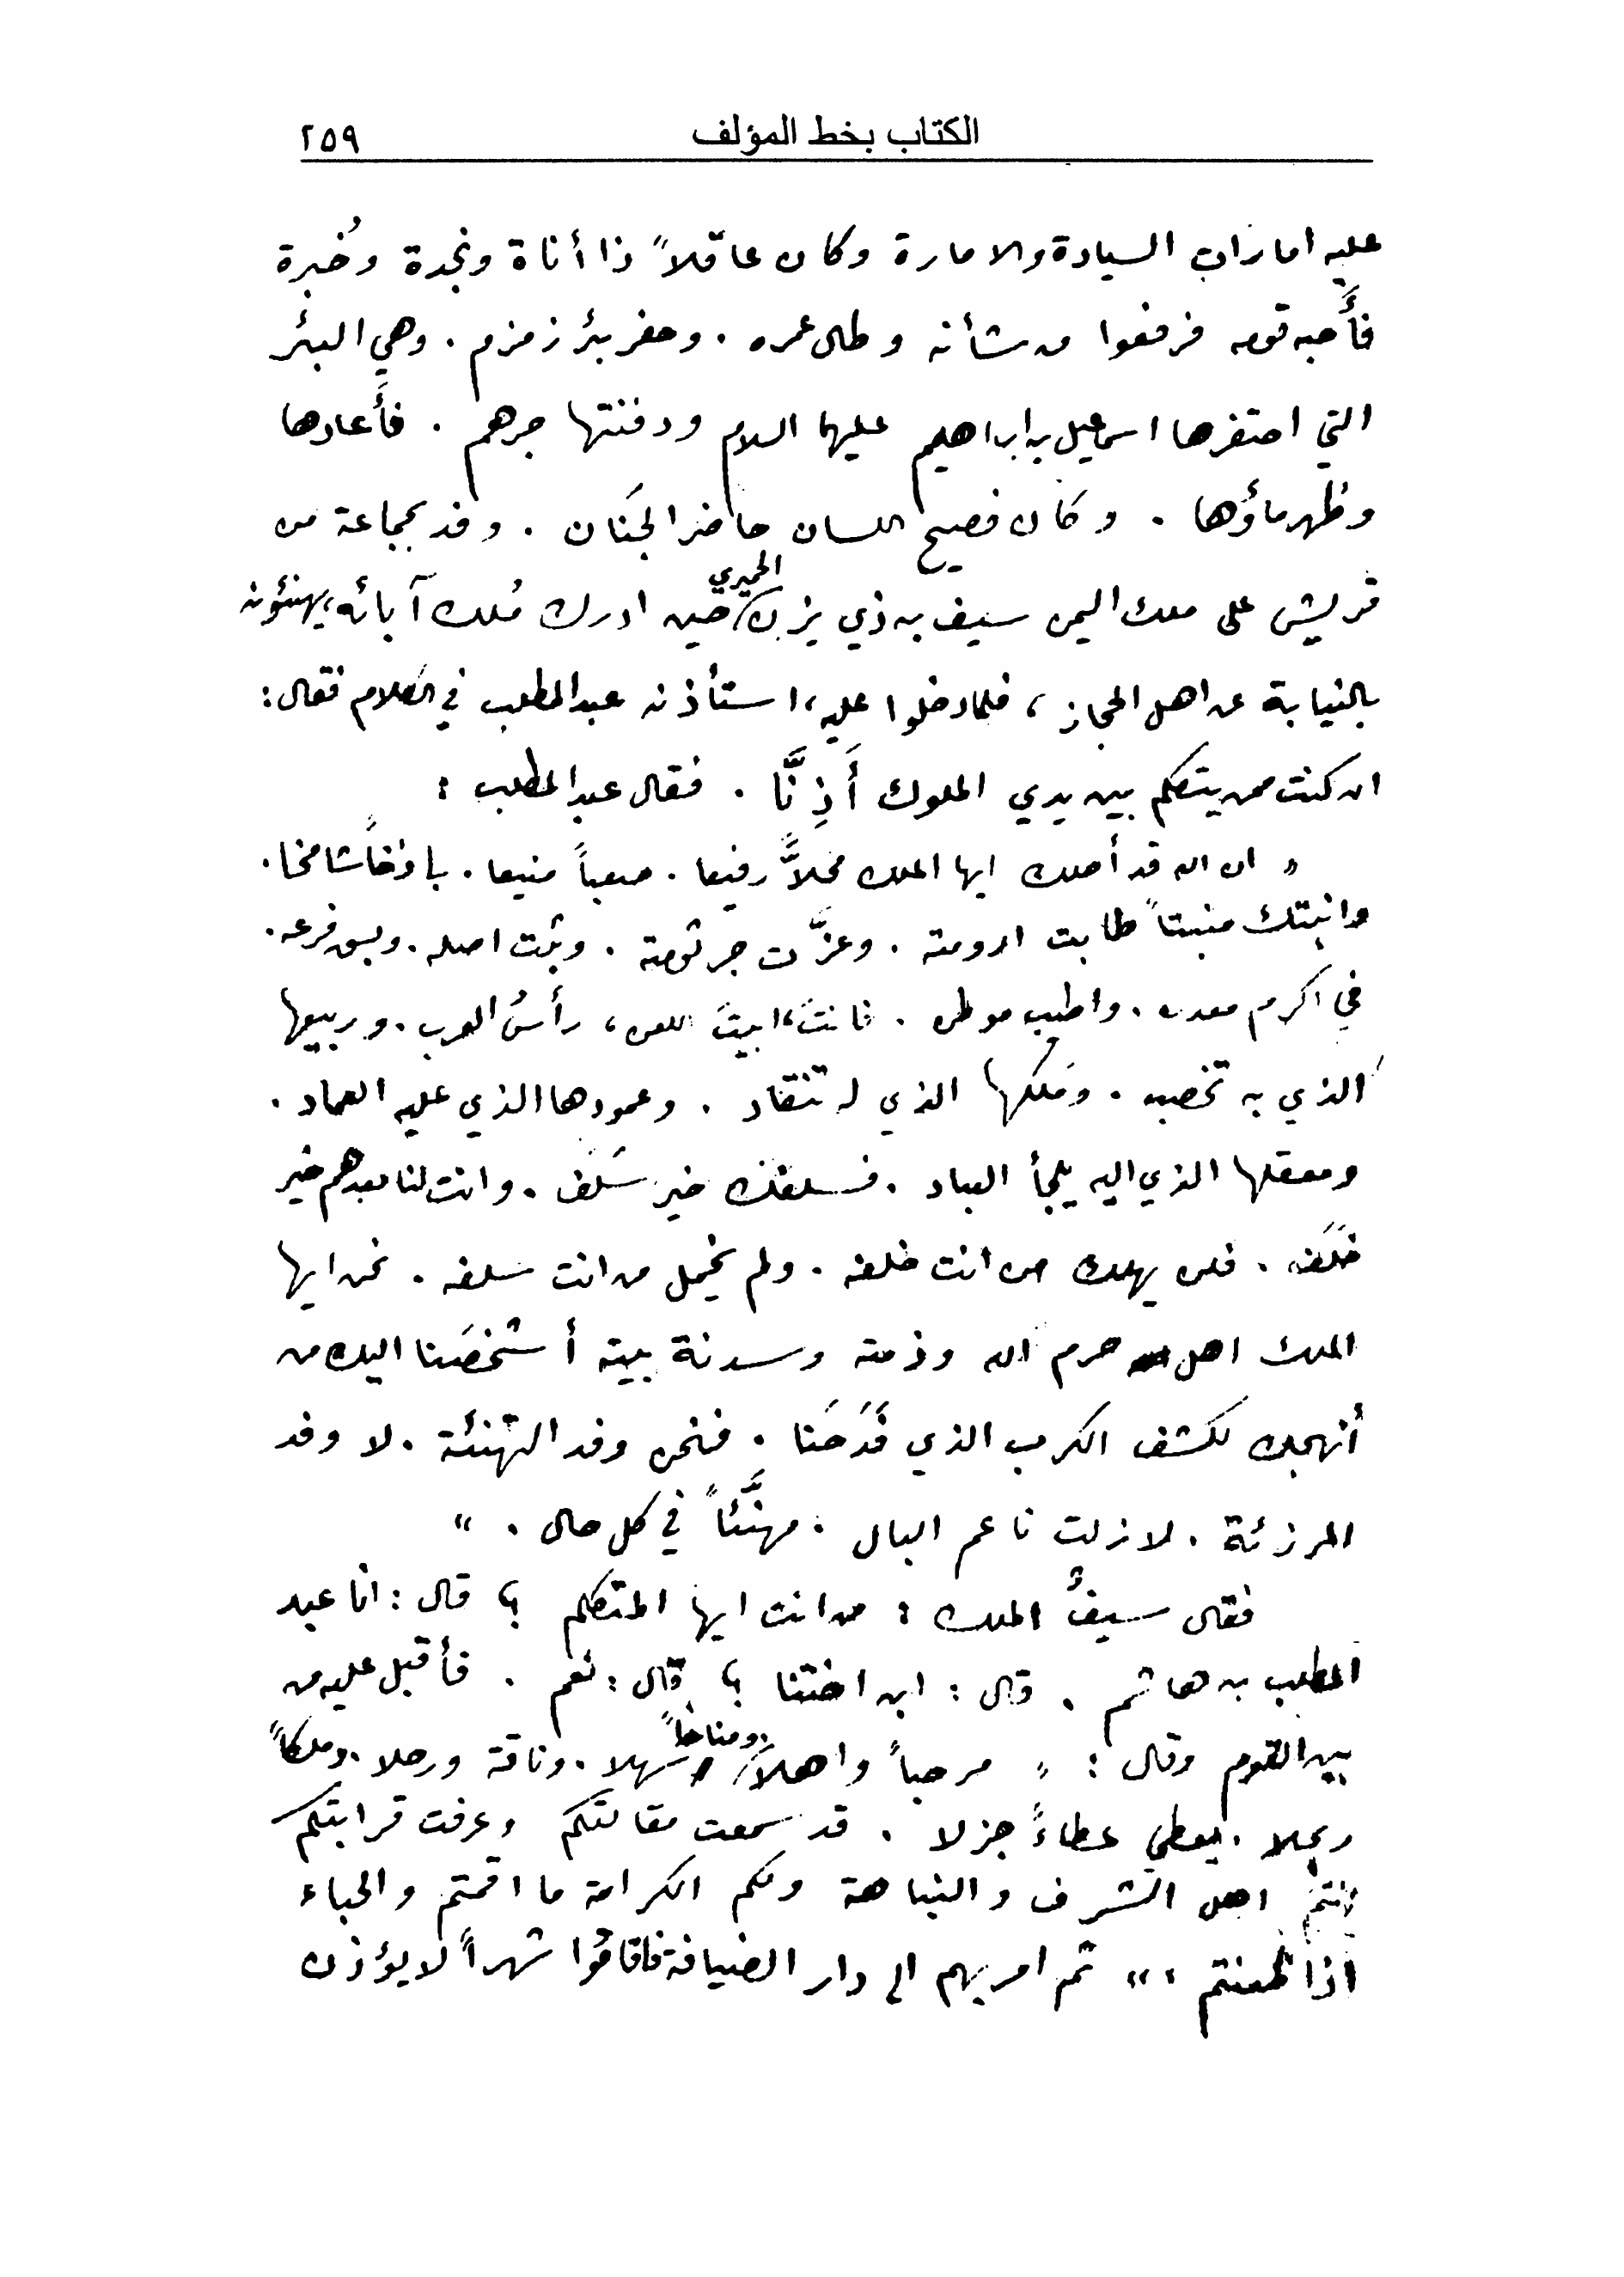 الكتاب بخط المؤلف ٢٥٩
عليه امارات السيادة والامارة وكان عاقلاً ذا أناة ونجدة وخُبرة
فأَحبه قومه فرفعوا من شأنه وطال عمره . وحفر بئر زمزم . وهي البئر
التي احتفرها اسماعيل بن ابراهيم عليهما السلام ودفنتها جرهم . فأَعادها
وظهر ماؤها . وكان فصيح اللسان حاضر الجَنان . وفد بجماعة من
قريش على ملك اليمن سيف بن ذي يزن الحميري حين ادرك مُلك آبائه، يهنئونه
بالنيابة عن اهل الحجاز ، فلما دخلوا عليه، استأذنه عبد المطلب في الكلام فقال :
ان كنت ممن يتكلم بين يدي الملوك أَذِنَّا . فقال عبد المطلب :
" ان الله قد أحلك ايها الملك محلاًّ رفيعا . صعباً منيعا . باذخاً شامخا .
وانبتك منبتاً طابت ارومته . وعزَّت جرثومته . وثبت اصله . وبسق فرعه .
في اكرم معدن . واطيب موطن . فانتَ، ابيتَ اللعن ، رأسُ العرب . وربيعها
الذي به تخصب . ومَلكها الذي له تنقاد . وعمودها الذي عليه العماد .
ومعقلها الذي اليه يلجأ العباد . فسلفك خير سَلَف . وانت لنا بعدهم خير
خَلَف . فلن يهلك من انت خلفه . ولم يخمل من انت سلفه . نحن ايها
الملك اهل حرم الله وذمته وسدنة بيته أشخصَنا اليك من
أنهجك لكشف الكرب الذي فَدَحَنا . فنحن وفد التهنئة . لا وفد
المرزئة . لا زلت ناعم البال . مهنَّئاً في كل حال . "
فقال سيفٌ الملك : من انت ايها المتكلم ؟ قال : انا عبد
المطلب بن هاشم . قال : ابن اختنا ؟ قال : نعم . فأقبل عليه من
بين القوم وقال : " مرحباً واهلاً . ومناخاً سهلا . وناقة ورحلا . وملكاً
ربحلا . يعطي عطاءً جزلا . قد سمعت مقالتكم وعرفت قرابتكم
انتم اهل الشرف والنباهة ولكم الكرامة ما اقمتم والحباء
اذا ظعنتم . " ثم امر بهم الى دار الضيافة فاقاموا شهراً لا يؤذن